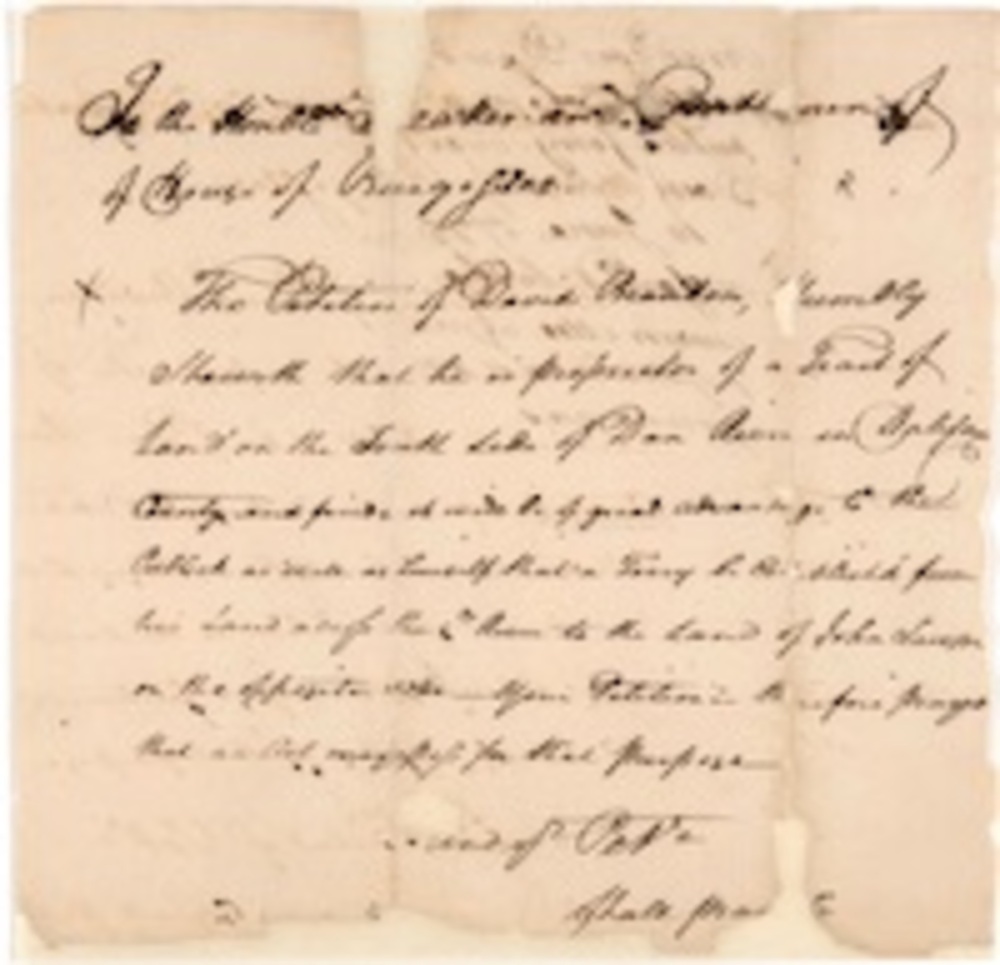 To the Honble Speaker and Gentlemen of
of House of Burgesses
The Petition of David Humbly
Sheweth that he is proprietor of a Tract of
Land on the South Side of Dan River in Halifax
County and finds it will be of great advantage to the
Publick as well as himself that a Ferry be Established from
his Land across the Sd River to the Land of John Lawson
on the opposite side Your Petitioner therefore prays
that an Act may pass for that purpose
and yr Petr
Shall pray &c